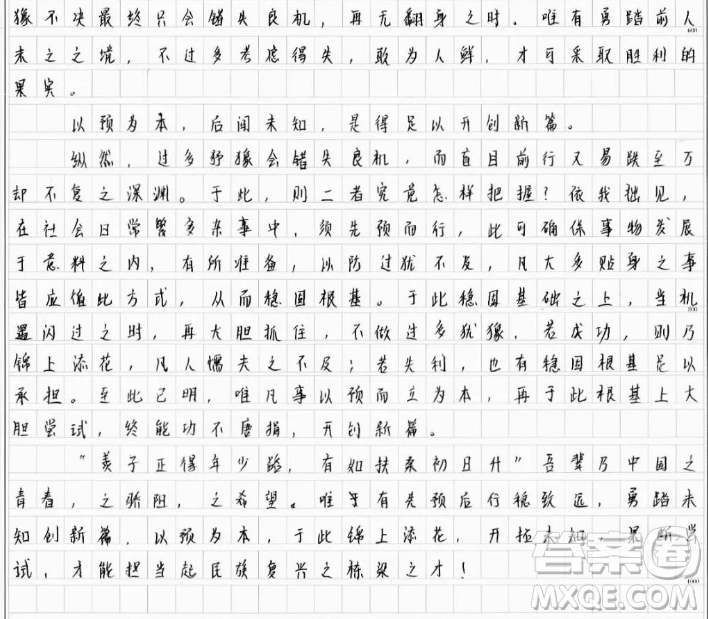 豫不决最终只会错失良机，再无翻身之时。唯有勇踏前人
600
未之之境，不过多考虑得失，敢为人鲜，才可采取胜利的
果实。
以预为本，后闻未知，是得足以开创新篇。
纵然，过多犹豫会错失良机，而盲目前行又易跌至万
却不复之深渊。于此，则二者究竟怎样把握？依我拙见，
在社会日常繁多杂事中，须先预而行，此可确保事物发展
于意料之内，有所准备，以防过犹不及，凡大多贴身之事
皆应循此方式，从而稳固根基。于此稳固基础之上，当机
800
遇闪过之时，再大胆抓住，不做过多犹豫。若成功，则乃
锦上添花，凡人懦夫之不及；若失利，也有稳固根基足以
承担。至此已明，唯凡事以预而立为本，再于此根基上大
胆尝试，终能功不唐捐，开创新篇。
"美子正得年少路，有如扶桑初日升"吾辈乃中国之
青春，之骄阳，之希望。唯有先预后行稳致远，勇踏未
知创新篇，以预为本，于此锦上添花，开拓未知，果断尝
试，才能担当起民族复兴之栋梁之才！
1000
答案圈
MXQE.COM